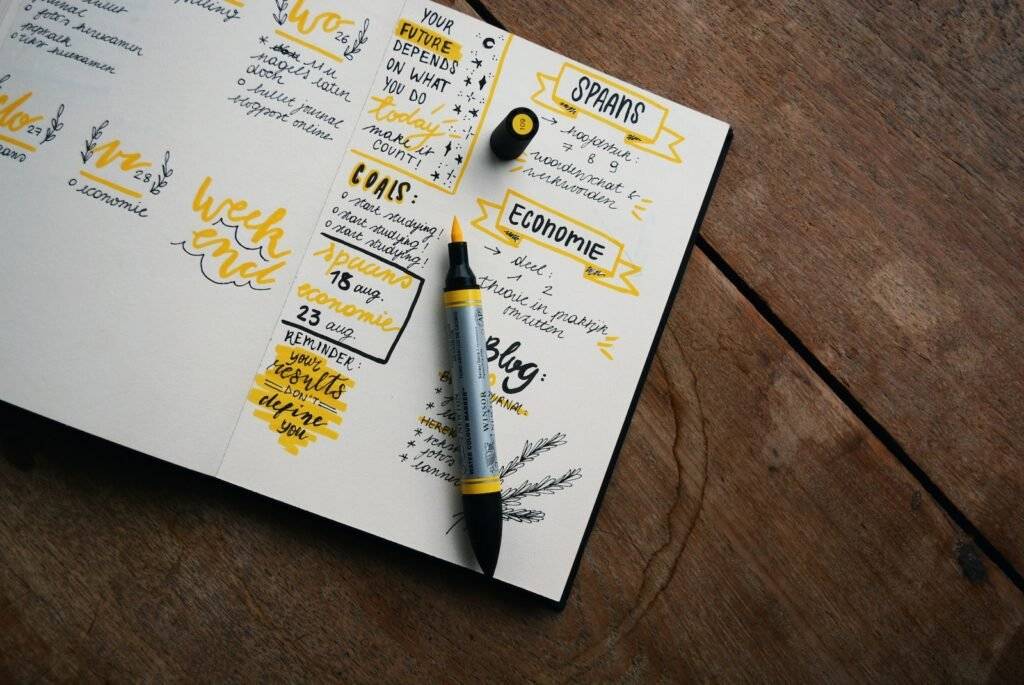 journal
o foto's herexamen
o tekst herexamen
wo
26
nagels laten
doen
o bullet journal
blogpost online
do
27
vr
28
o economie
week
end
YOUR
FUTURE
DEPENDS
ON WHAT
YOU DO
today
make it
COUNT!
GOALS:
o start studying!
o start studying!
o start studying!
spaans
18 aug.
economie
23 aug.
REMINDER:
your
results
DON'T
define
you
SPAANS
→ hoofdstuk:
7 8 9
woordenschat &
werkwoorden
ECONOMIE
→ deel:
1 2
theorie in praktijk
omzetten
Blog:
109
WINSOR